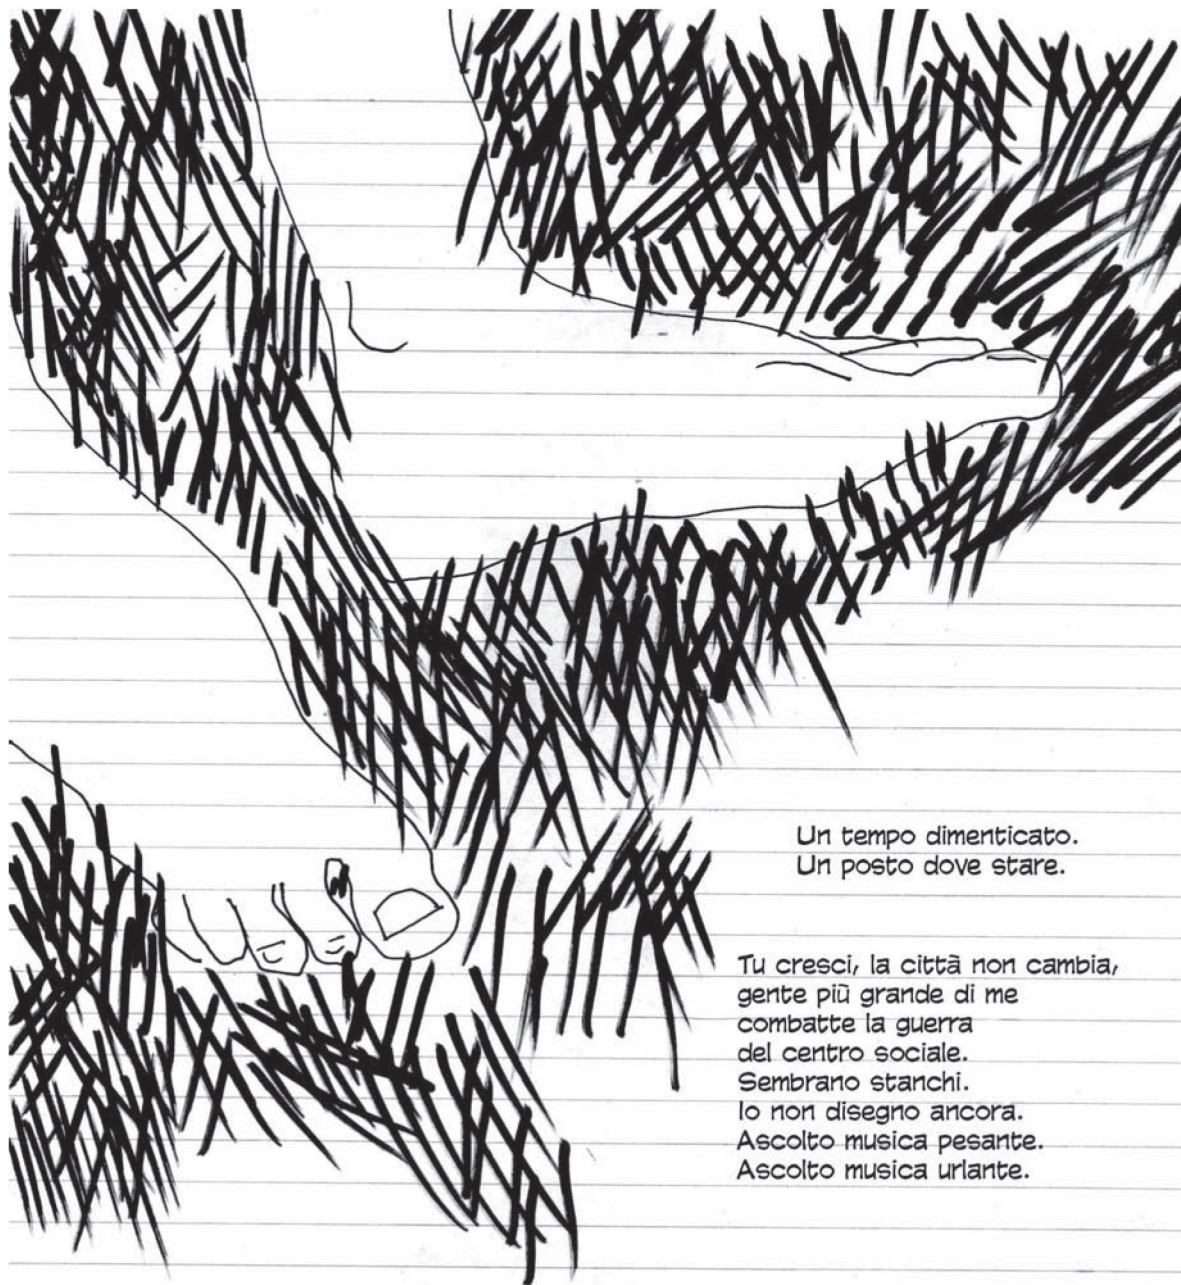 Un tempo dimenticato.
Un posto dove stare.
Tu cresci, la città non cambia,
gente più grande di me
combatte la guerra
del centro sociale.
Sembrano stanchi.
Io non disegno ancora.
Ascolto musica pesante.
Ascolto musica urlante.